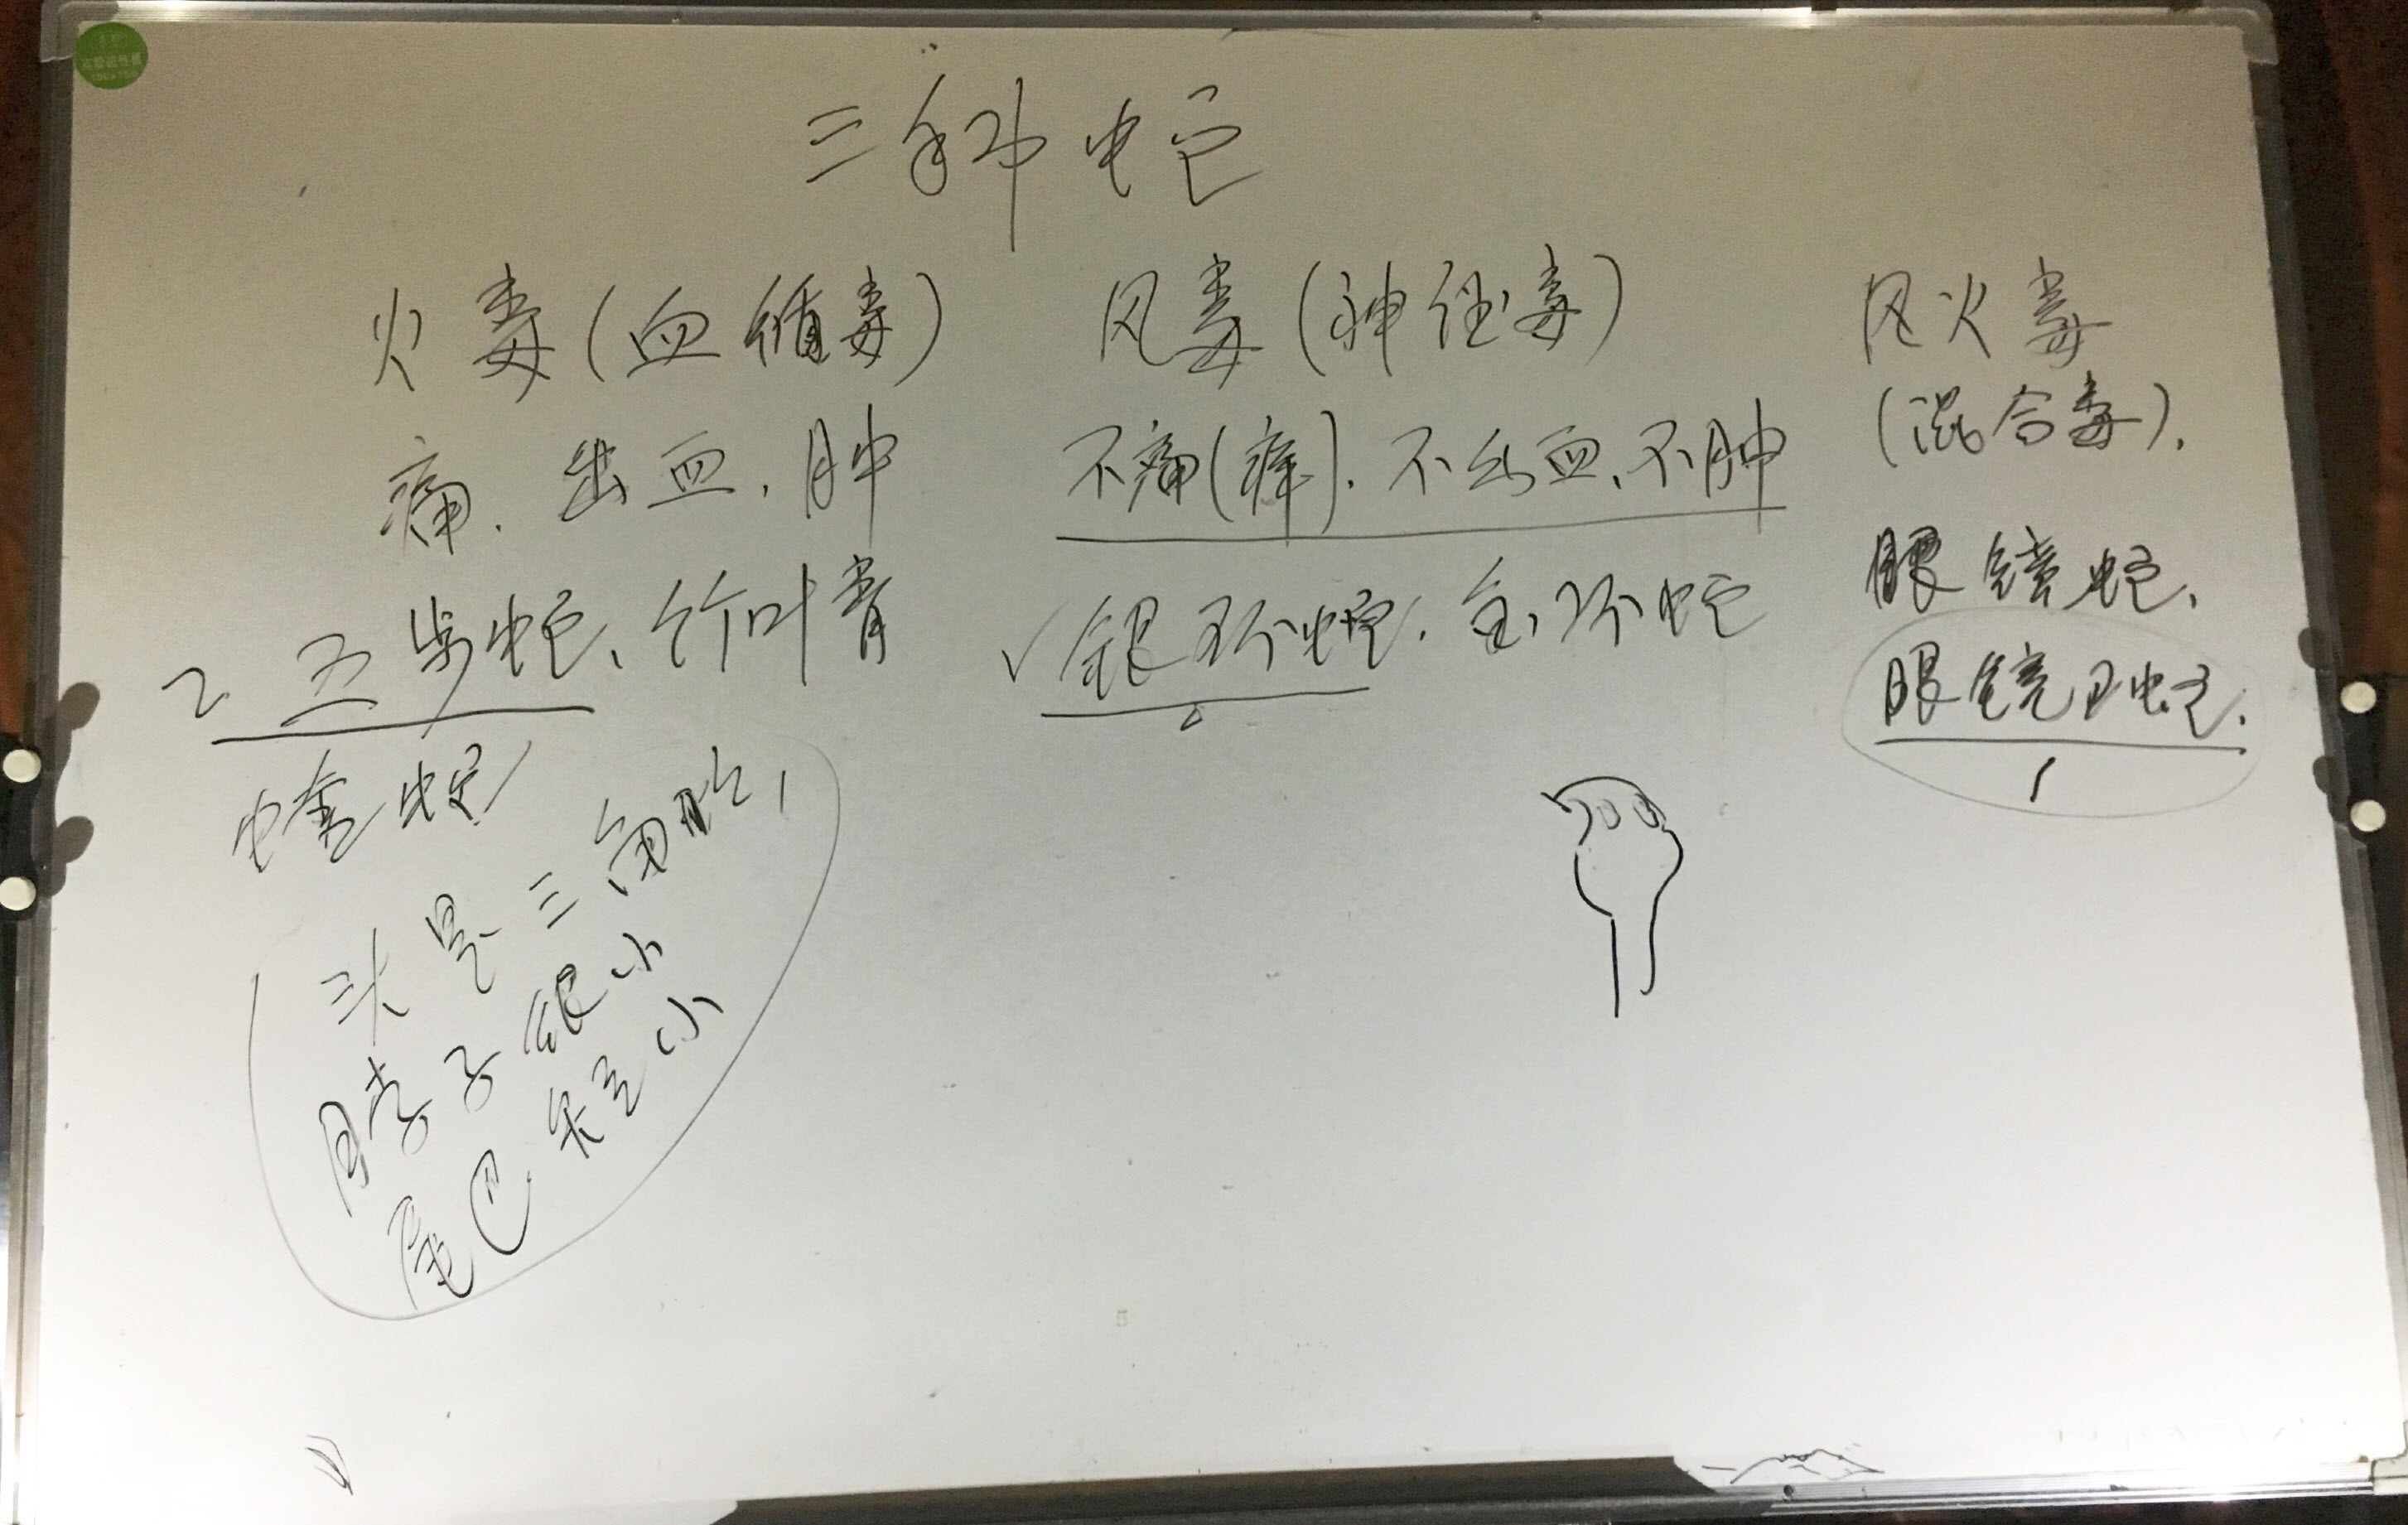 三种蛇
火毒(血循毒)
痛、出血、肿
2 五步蛇、竹叶青
蝰蛇
头是三角形,
脖子很小
尾巴短小
风毒(神经毒)
不痛(痒)、不出血、不肿
✓银环蛇、金环蛇
风火毒
(混合毒).
眼镜蛇、
眼镜王蛇.
1